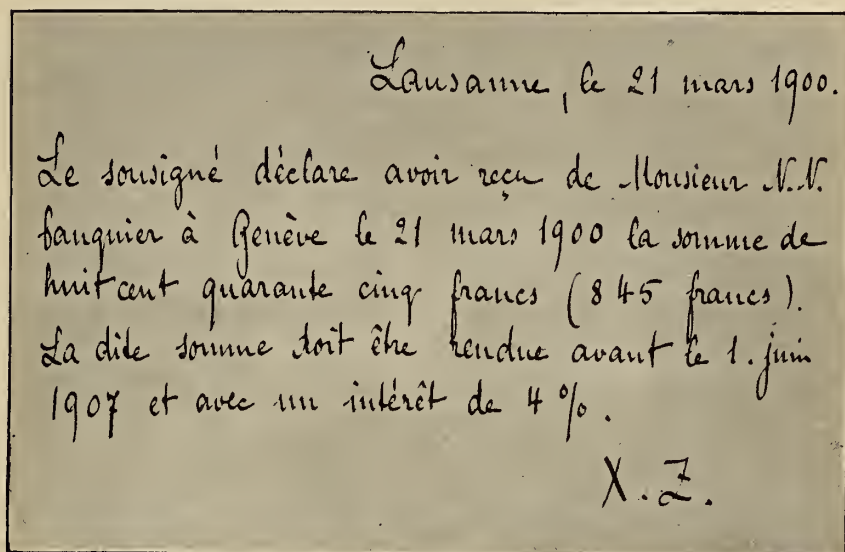 Lausanne, le 21 mars 1900.
Le sousigné déclare avoir reçu de Monsieur N.N.
banquier à Genève le 21 mars 1900 la somme de
huit cent quarante cinq francs (845 francs).
La dite somme doit être rendue avant le 1. juin
1907 et avec un intérêt de 4%.
X.Z.